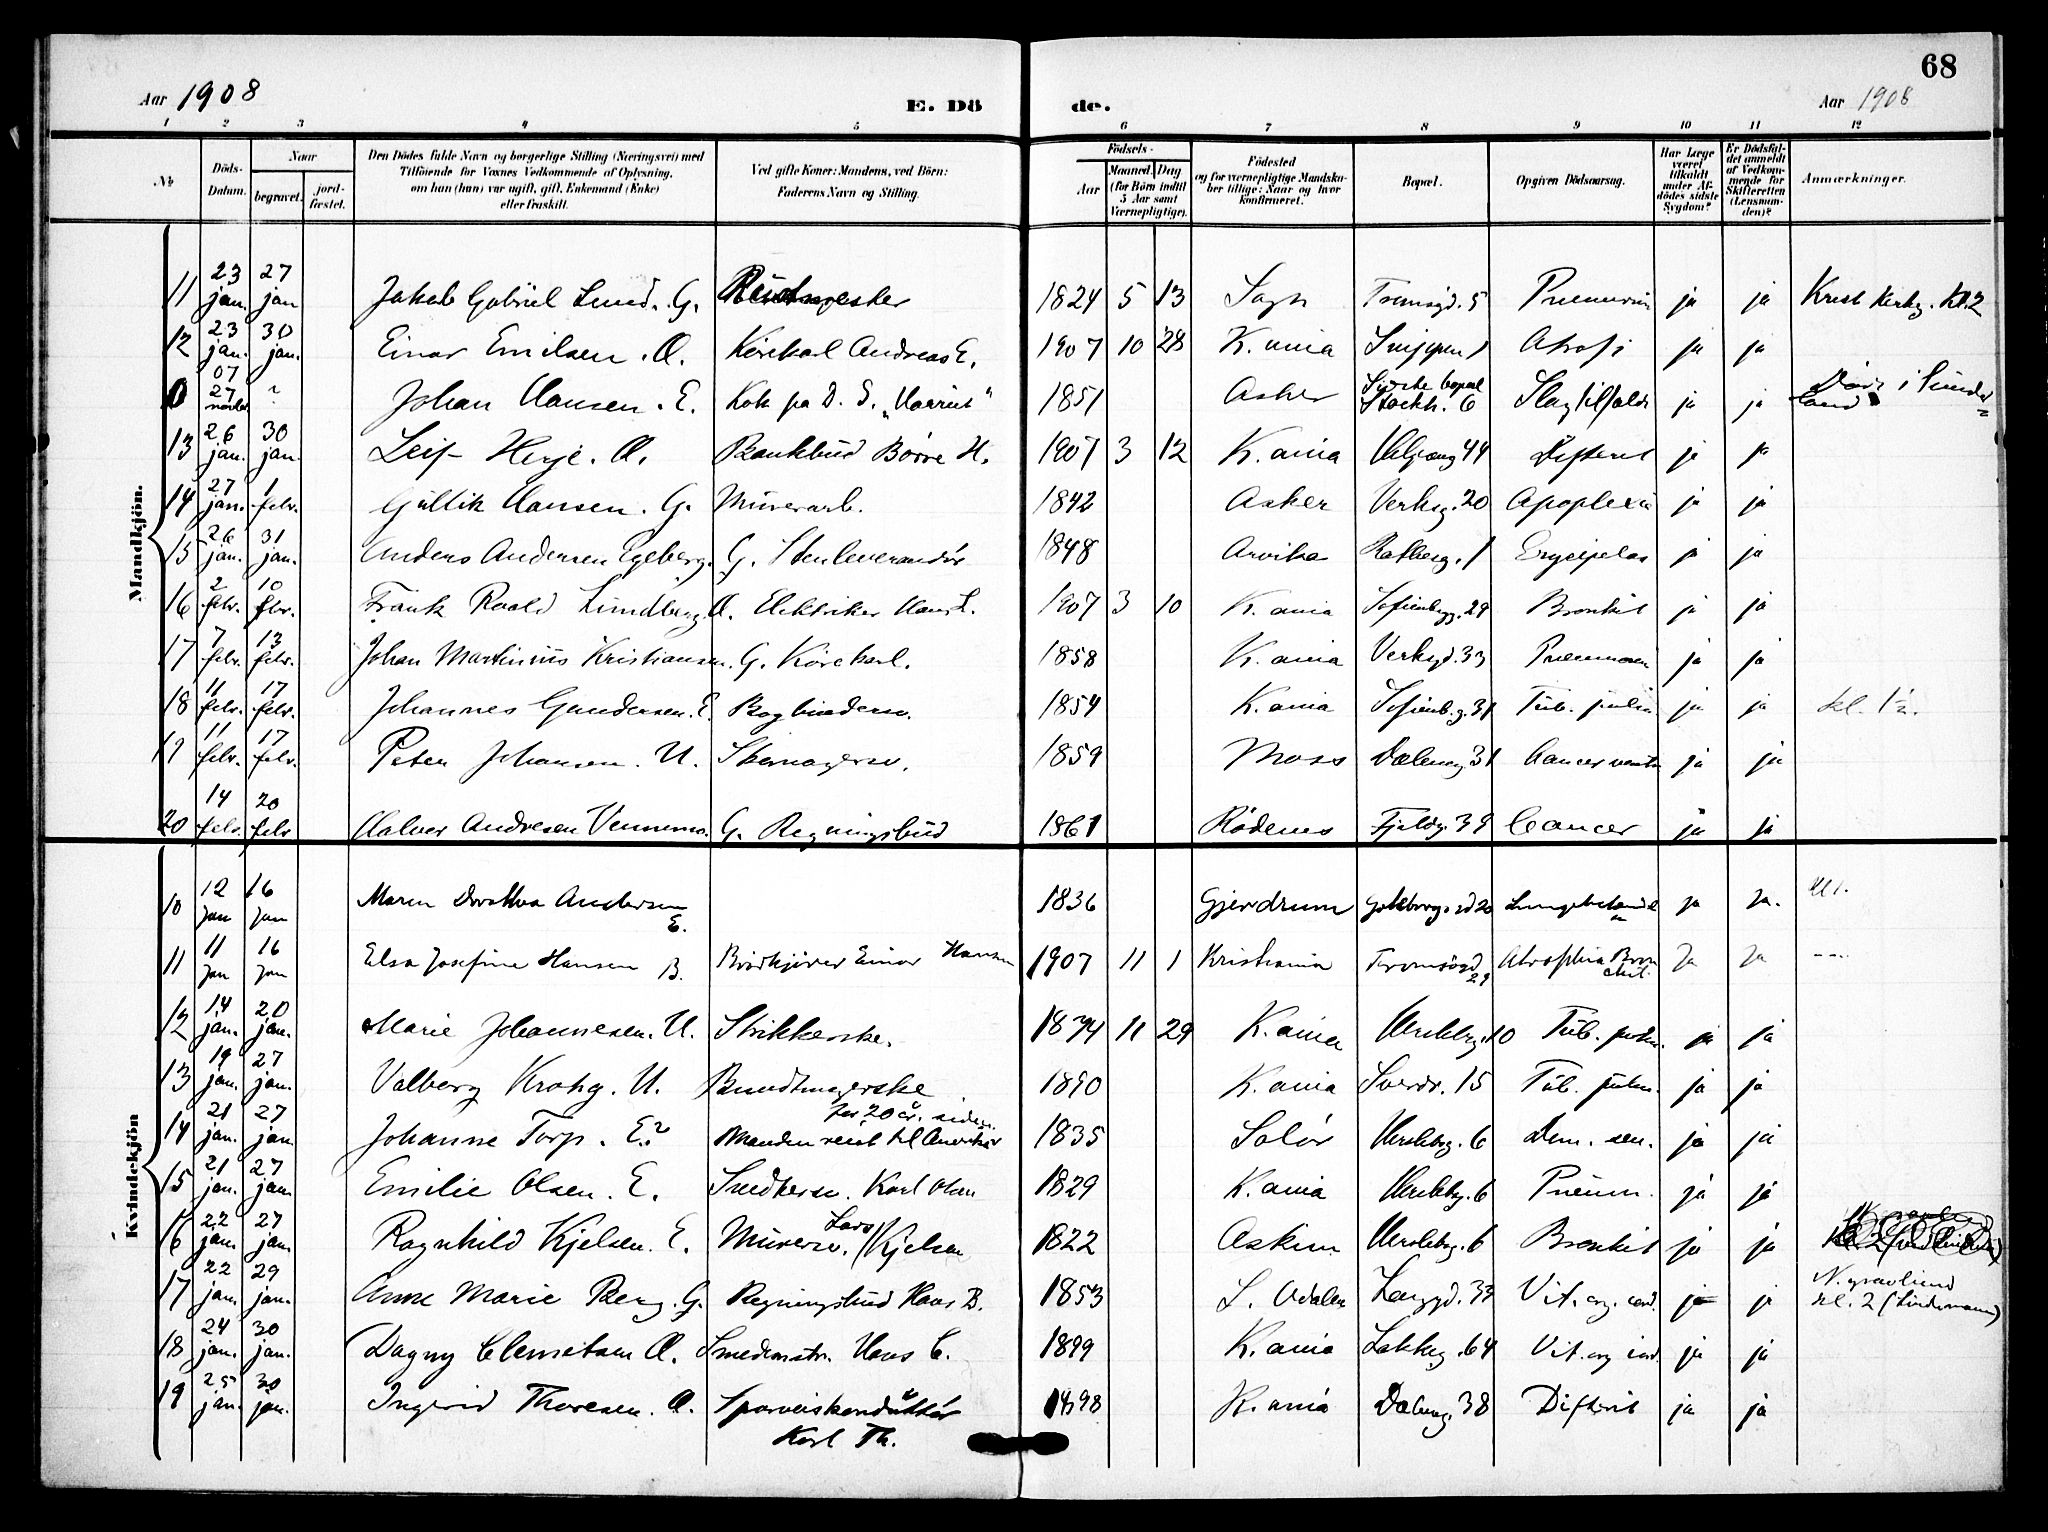 68
Aar 1908 E. Dö de. Aar 1908
1 2 3 4 5 6 7 8 9 10 11 12
No. Döds-Datum. Naar begravet. jordfæstet. Den Dödes fulde Navn og borgerlige Stilling (Næringsvei) med Tilföiende for Voxnes Vedkommende af Oplysning. om han (hun) var ugift, gift, Enkemand (Enke) eller fraskilt. Ved gifte Koner: Mandens, ved Börn: Faderens Navn og Stilling. Födsels- Aar Maaned Dag (for Börn indtil 5 Aar samt Værnepligtige). Födested og for værnepligtige Mandskaber tillige: Naar og hvor konfirmeret. Bopæl. Opgiven Dödsaarsag. Har Læge været tilkaldt under Afdödes sidste Sygdom? Er Dödsfaldet anmeldt af Vedkommende for Skifteretten (Lensmanden)? Anmærkninger.
Mandkjön.
11 23 jan. 27 jan Jakob Gabriel Lund. G. 1824 5 13 Sogn Tromsgd. 5 ja ja Krist Kirkg. Kl. 2
12 23 jan. 30 jan. Einar Emilsen. A. Kørekarl Andreas E. 1907 10 28 K.ania Atrofi ja ja
0 07 27 ? Johan Hansen. E. Kok pa D. S. 1851 Asker Sidste bopæl Stockh. 6 Slag tilfælde ja ja Død i Sunderland
13 26 jan. 30 jan. Leif Herje. A. Bankbud Børre H. 1907 3 12 K.ania 44 Difterit ja ja
14 27 jan. 1 febr. Gullik Hansen. G. Murerarb. 1842 Asker Verksg. 20 Apoplexia ja ja
15 26 jan. 31 jan. Anders Andersen Egeberg. G. Stenleverandør 1848 Arvika Ratkeg. 1 Erysipelas ja ja
16 2 febr. 10 febr. Frank Roald Lundberg. A. Elektriker Hans L. 1907 3 10 K.ania Sofienbgg. 29 Bronkit ja ja
17 7 febr. 13 febr. Johan Martinius Kristiansen. G. Kørekarl. 1858 K.ania Verksgd. 33 Pneumoni ja ja
18 11 febr. 17 febr. Johannes Gundersen. E. Bogbindersv. 1854 K.ania Sofienb.g. 31 Tub. pulm. ja ja kl. 1½.
19 11 febr. 17 febr. Peter Johansen. U. Skomagersv. 1859 Moss Dæleneg. 31 Cancer ventr ja ja
20 14 febr. 20 febr Halvor Andresen Vennemo. G. Regningsbud 1861 Rödenes Fjeldg. 39 Cancer ja ja
Kvindekjön
10 12 jan 16 jan Maren Dorothea Andersen E. 1836 Gjerdrum Gøteborgsgd 20 Lungebetændel ja ja.
11 11 jan 16 jan Elsa Josefine Hansen B. Brødkjører Einar Hansen 1907 11 1 Kristiania Tromsögd 29 Atrophia Bronchit. Ja Ja
12 14 jan. 20 jan. Marie Johannesen. U. Strikkerske. 1874 11 29 K.ania Herslebsg. 10 Tub. pulm. ja ja
13 19 jan. 27 jan. Valborg Krohg. U. Bundtmagerske 1890 K.ania Sverdr. 15 Tub. pulm. ja ja
14 21 jan. 27 jan. Johanne Torp. E? Manden reist til Amerika for 20 år. siden. 1835 Solør Herslebsg. 6 Dem. sen. ja ja
15 21 jan. 27 jan. Emilie Olsen. E. Snedkersv. Karl Olsen 1829 K.ania Herslebsg. 6 Pneum. ja ja
16 22 jan. 27 jan. Ragnhild Kjelsen. E. Murersv. Lars Kjelsen 1822 Askim Herslebsg. 6 Bronkit ja ja
17 22 jan. 29 jan. Anne Marie Berg. G. Regningsbud Hans B. 1853 S. Odalen Langgd. 33 Vit. org. cord. ja ja N. gravlund kl. 2 (Lindemann)
18 24 jan. 30 jan. Dagny Clemetsen A. Smedmstr. Hans C. 1899 K.ania Lakkeg. 64 Vit. org cord. ja ja
19 25 jan. 30 jan. Ingrid Thoresen. A. Sporveiskonduktør Karl Th. 1898 K.ania Dæleneg. 38 Difterit ja ja